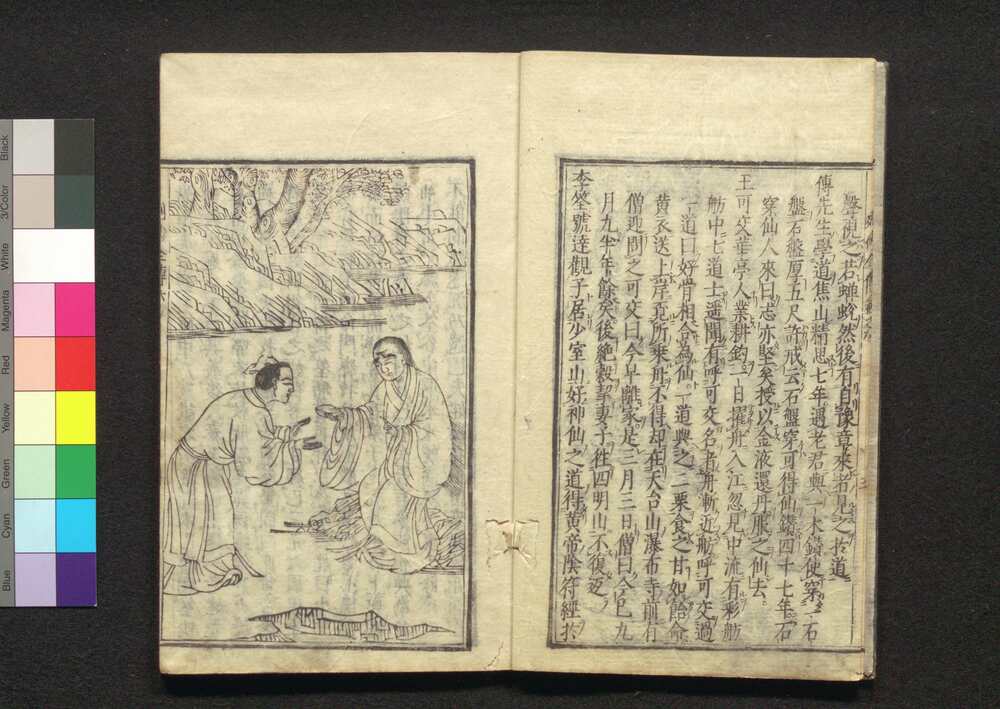 磬視之若蟬蛻然後有自豫章來者見之於道
傅先生學道焦山精思七年遇老君與一木鑽使穿一石
盤石盤厚五尺許戒云石盤穿可得仙鑽四十七年石
穿仙人來曰志亦堅矣授以金液還丹服之仙去
王可交華亭人業耕釣一日擢舟入江忽見中流有彩舫
舫中七道士遥聞有呼可交名者舟漸近舫呼可交過
一道曰好骨相合為仙一道與之二栗食之甘如飴命
黄衣送上岸覓所乘舟不得却在天台山瀑布寺前有
僧迎問之可交曰今早離家是三月三日僧曰今已九
月九半年餘矣後絶穀挈妻子往四明山不復返
李筌號達觀子居少室山好神仙之道得黄帝陰符經於
Black
3/Color
White
Magenta
Red
Yellow
Green
Cyan
Blue